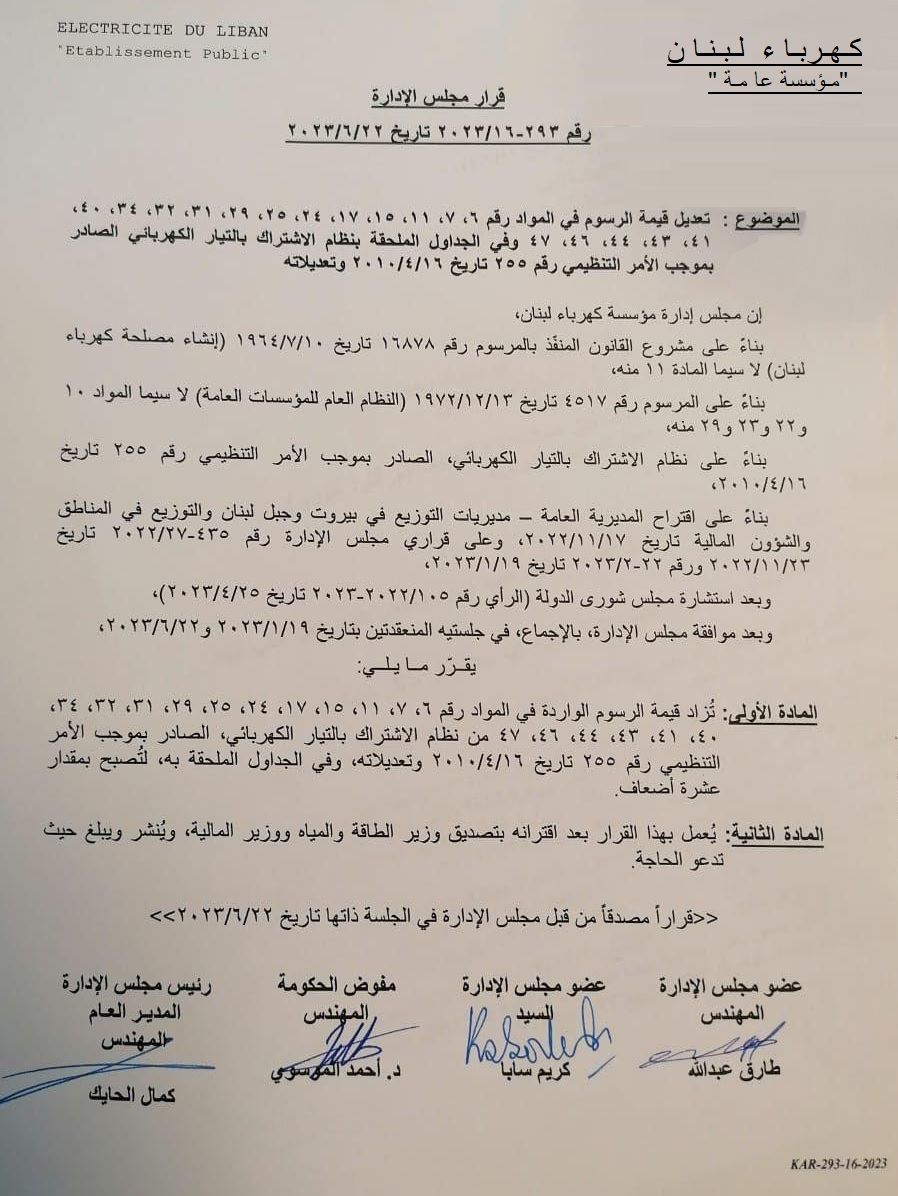 ELECTRICITE DU LIBAN
"Etablissement Public"
كهرباء لبنان
"مؤسسة عامة"
قرار مجلس الإدارة
رقم ٢٩٣-٢٠٢٣/١٦ تاريخ ٢٠٢٣/٦/٢٢
الموضوع : تعديل قيمة الرسوم في المواد رقم ٦، ٧، ١١، ١٥، ١٧، ٢٤، ٢٥، ٢٩، ٣١، ٣٢، ٣٤، ٤٠،
٤١، ٤٣، ٤٤، ٤٦، ٤٧ وفي الجداول الملحقة بنظام الاشتراك بالتيار الكهربائي الصادر
بموجب الأمر التنظيمي رقم ٢٥٥ تاريخ ٢٠١٠/٤/١٦ وتعديلاته
إن مجلس إدارة مؤسسة كهرباء لبنان،
بناءً على مشروع القانون المنفّذ بالمرسوم رقم ١٦٨٧٨ تاريخ ١٩٦٤/٧/١٠ (إنشاء مصلحة كهرباء
لبنان) لا سيما المادة ١١ منه،
بناءً على المرسوم رقم ٤٥١٧ تاريخ ١٩٧٢/١٢/١٣ (النظام العام للمؤسسات العامة) لا سيما المواد ١٠
و٢٢ و٢٣ و٢٩ منه،
بناءً على نظام الاشتراك بالتيار الكهربائي، الصادر بموجب الأمر التنظيمي رقم ٢٥٥ تاريخ
٢٠١٠/٤/١٦،
بناءً على اقتراح المديرية العامة – مديريات التوزيع في بيروت وجبل لبنان والتوزيع في المناطق
والشؤون المالية تاريخ ٢٠٢٢/١١/١٧، وعلى قراري مجلس الإدارة رقم ٤٣٥-٢٠٢٢/٢٧ تاريخ
٢٠٢٢/١١/٢٣ ورقم ٢٢-٢٠٢٣/٢ تاريخ ٢٠٢٣/١/١٩،
وبعد استشارة مجلس شورى الدولة (الرأي رقم ٢٠٢٢/١٠٥-٢٠٢٣ تاريخ ٢٠٢٣/٤/٢٥)،
وبعد موافقة مجلس الإدارة، بالإجماع، في جلستيه المنعقدتين بتاريخ ٢٠٢٣/١/١٩ و٢٠٢٣/٦/٢٢،
يقرّر ما يلي:
المادة الأولى: تُزاد قيمة الرسوم الواردة في المواد رقم ٦، ٧، ١١، ١٥، ١٧، ٢٤، ٢٥، ٢٩، ٣١، ٣٢، ٣٤،
٤٠، ٤١، ٤٣، ٤٤، ٤٦، ٤٧ من نظام الاشتراك بالتيار الكهربائي، الصادر بموجب الأمر
التنظيمي رقم ٢٥٥ تاريخ ٢٠١٠/٤/١٦ وتعديلاته، وفي الجداول الملحقة به، لتُصبح بمقدار
عشرة أضعاف.
المادة الثانية: يُعمل بهذا القرار بعد اقترانه بتصديق وزير الطاقة والمياه ووزير المالية، ويُنشر ويبلغ حيث
تدعو الحاجة.
<<قراراً مصدقاً من قبل مجلس الإدارة في الجلسة ذاتها تاريخ ٢٠٢٣/٦/٢٢>>
عضو مجلس الإدارة
المهندس
طارق عبدالله
عضو مجلس الإدارة
السيد
كريم سابا
مفوض الحكومة
المهندس
د. أحمد الموسوي
رئيس مجلس الإدارة
المدير العام
المهندس
كمال الحايك
KAR-293-16-2023